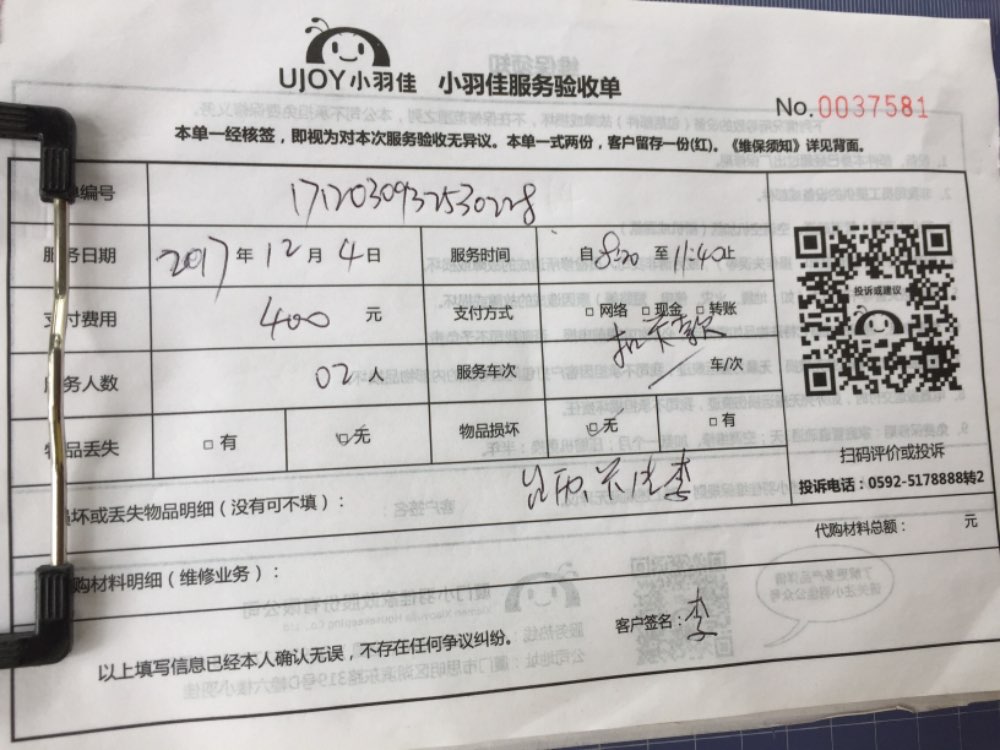 UJOY小羽佳 小羽佳服务验收单
No.0037581
本单一经核签，即视为对本次服务验收无异议。本单一式两份，客户留存一份(红)。《维保须知》详见背面。
单编号 1712030932530228
服务日期 2017年12月4日 服务时间 自8:30至11:40止
支付费用 400元 支付方式 □网络 □现金 □转账
扣卡款
服务人数 02人 服务车次 车/次
物品丢失 □有 ☑无 物品损坏 ☑无 □有
投诉或建议
扫码评价或投诉
投诉电话：0592-5178888转2
损坏或丢失物品明细（没有可不填）：
代购材料总额： 元
购材料明细（维修业务）：
客户签名：李
以上填写信息已经本人确认无误，不存在任何争议纠纷。